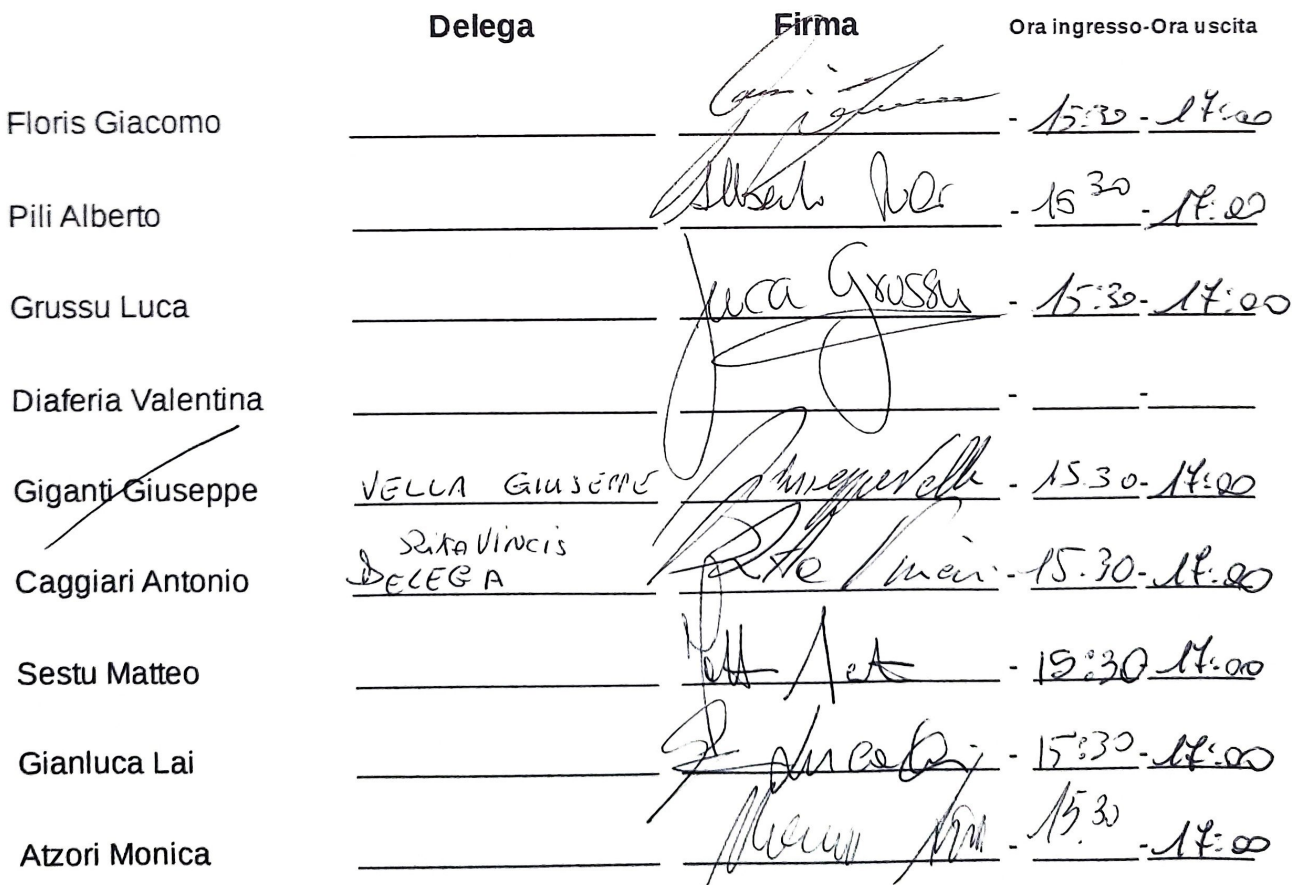 Delega Firma Ora ingresso-Ora uscita
Floris Giacomo - 15:30 - 17:00
Pili Alberto Alberto - 15 30 - 17:00
Grussu Luca Luca Grussu - 15:30 - 17:00
Diaferia Valentina - -
Giganti Giuseppe VELLA GIUSEPPE Giuseppe Vella - 15.30 - 17:00
Rita Vincis
Caggiari Antonio DELEGA Rita Vincis - 15.30 - 17:00
Sestu Matteo - 15:30 17:00
Gianluca Lai - 15:30 - 17:00
Atzori Monica - 15.30 - 17:00